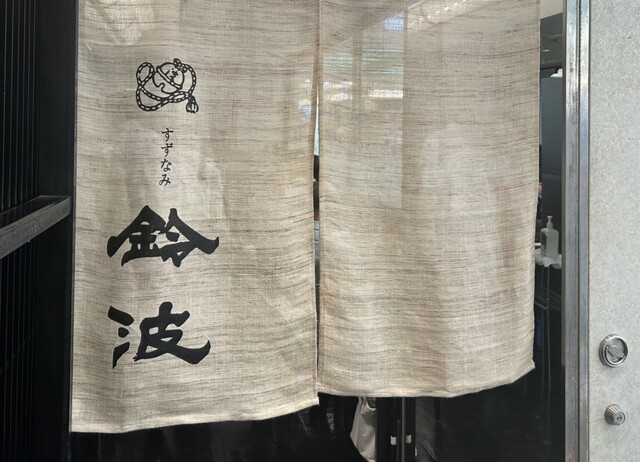 すずなみ
鈴波